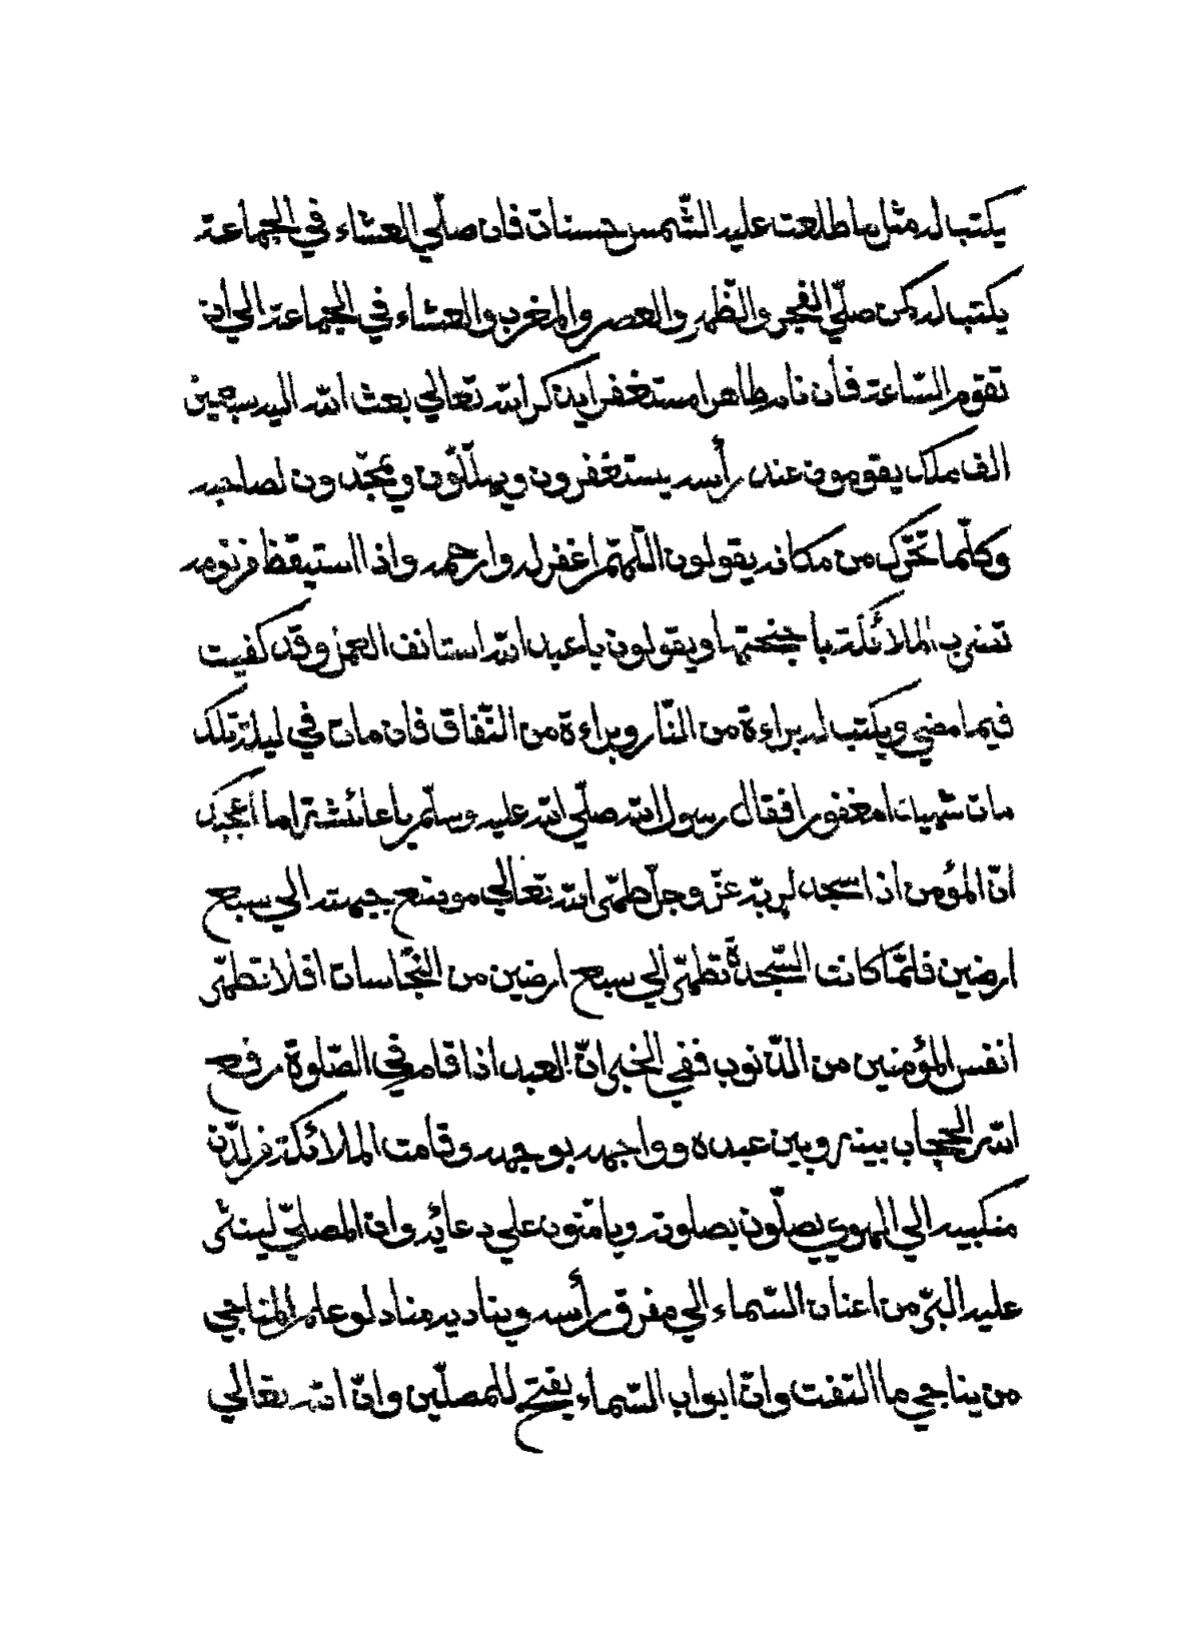 يكتب له مثل ما طلعت عليه الشّمس حسنات فان صلّي العشاء في الجماعة
يكتب له كمن صلّي الفجر والظّهر والعصر والمغرب والعشاء في الجماعة الي ان
تقوم السّاعة فأن نام طاهرا مستغفرا يذكر الله تعالي بعث الله اليه سبعين
الف ملك يقومون عند رأسه يستغفرون ويهلّلون ويمجّدون لصاحبه
وكلّما تحّرك من مكانه يقولون اللّهمّ اغفر له وارحمه واذا استيقظ من نومه
تضرب الملائكة باجنحتها ويقولون يا عبد الله استانف العمل وقد كفيت
فيما مضي ويكتب له براءة من النّار وبراءة من النّفاق فان مات في ليلة تلك
مات شهيدا مغفورا فقال رسول الله صلّي الله عليه وسلّم يا عائشة اما اعجبك
انّ المؤمن اذا سجد لربّه عزّ وجلّ طهّر الله تعالي موضع جبهته الي سبع
ارضين فلمّا كانت السّجدة تطهّر الي سبع ارضين من النّجاسات افلا تطهّر
انفس المؤمنين من الذّنوب ففي الخبر انّ العبد اذا قام في الصّلوة رفع
الله الحجاب بينه وبين عبده وواجهه بوجهه وقامت الملائكة من لدّن
منكبيه الي الهوي يصلّون بصلوته ويامّنون علي دعائه وان المصلّي لينثر
عليه البرّ من اعنان السّماء الي مفرق رأسه ويناديه مناد لو علم المناجي
من يناجي ما التفت وانّ ابواب السّماء يفتح للمصلّين وانّ الله تعالي